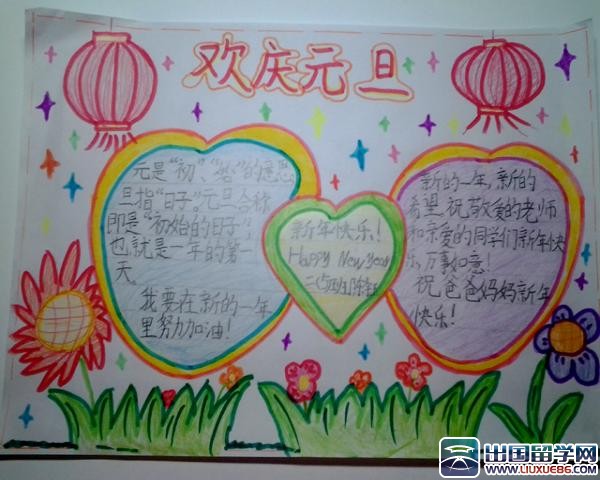 欢庆元旦
元是“初”、“始”的意思
旦指“日子”元旦合称
即是“初始的日子”
也就是一年的第一
天。
我要在新的一年
里努力加油！
新年快乐！
Happy New Year
新的一年,新的
希望,祝敬爱的老师
和亲爱的同学们新年快
乐,万事如意！
祝爸爸妈妈新年
快乐！
出国留学网
WWW.LIUXUE86.COM